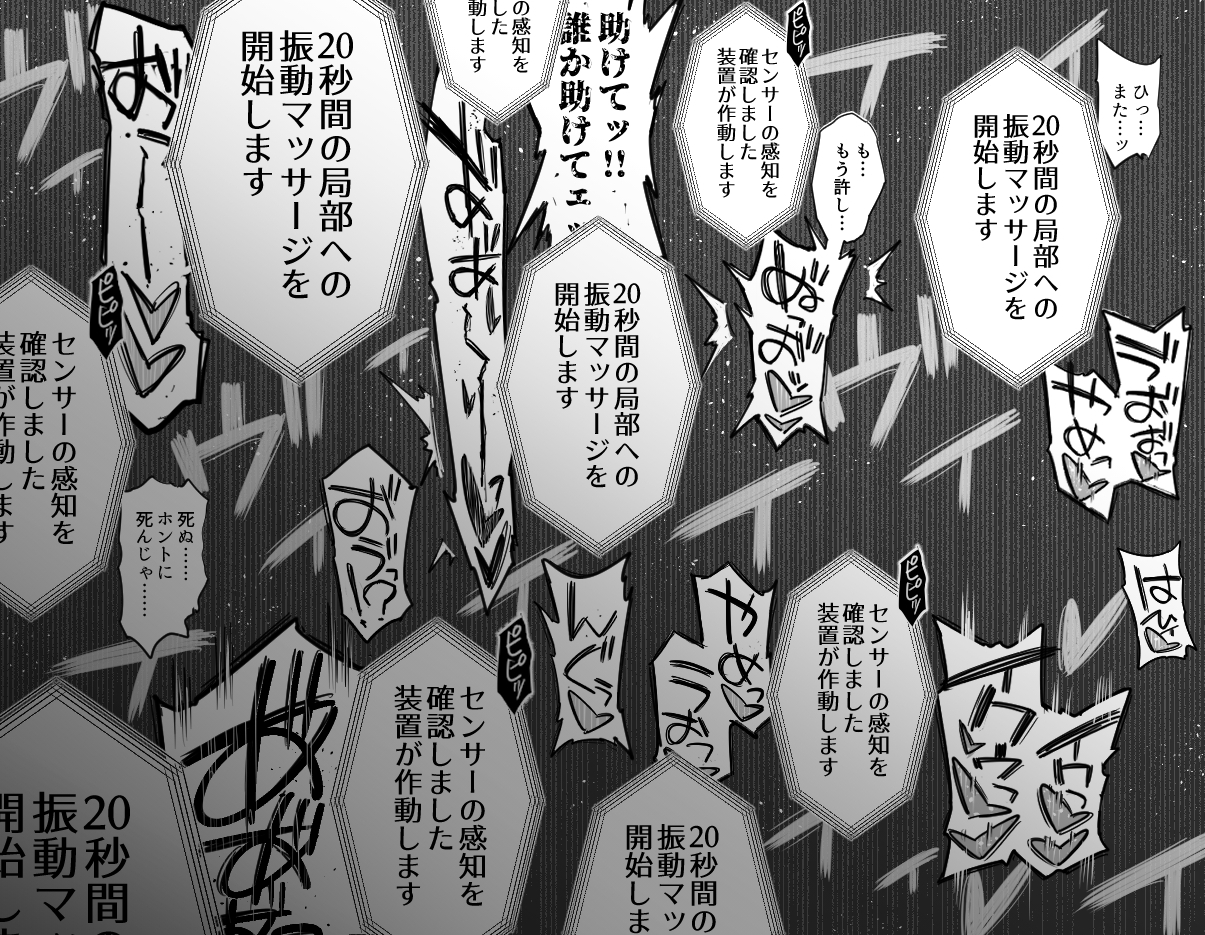 ひっ…
また…ッ
20秒間の局部への
振動マッサージを
開始します
も…
もう許し…
ピピッ
センサーの感知を
確認しました
装置が作動します
おっおっ
助けてッ!!
誰か助けてェ
の感知を
した
動します
20秒間の局部への
振動マッサージを
開始します
20秒間の局部への
振動マッサージを
開始します
おっー
やめっ
ピピッ
センサーの感知を
確認しました
装置が作動します
死ぬ……
ホントに
死んじゃ……
おうっ!?
イクッ
イクッ
ピピッ
センサーの感知を
確認しました
装置が作動します
やめっ
うおっ
ピピッ
センサーの感知を
確認しました
装置が作動します
20秒間の
振動マッ
開始しま
20秒間の
振動マッ
開始しま